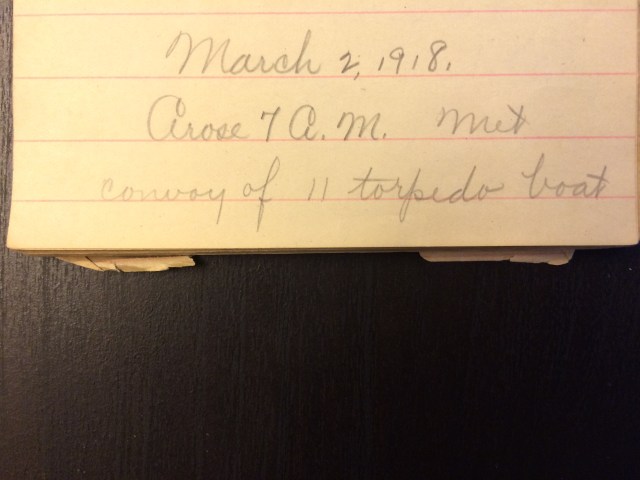 March 2, 1918.
Arose 7 A.M. Met
convoy of 11 torpedo boat